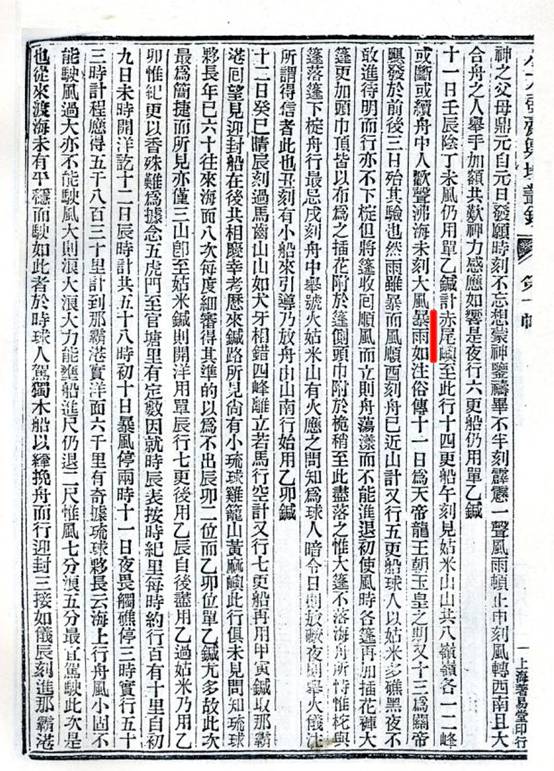 小方壺齋輿地叢鈔
第十帙
上海著易堂印行
神之父母鼎元自元日發願時刻不忘想蒙神鑒禱畢不半刻霹靂一聲風雨頓止申刻風轉西南且大
合舟之人舉手加額共歎神力感應如響是夜行六更船仍用單乙鍼
十一日壬辰陰丁未風仍用單乙鍼計赤尾嶼至此行十四更船午刻見姑米山山共八嶺嶺各一二峰
或斷或續舟中人歡聲沸海未刻大風暴雨如注俗傳十一日爲天帝龍王朝玉皇之期又十三爲關帝
颶發於前後三日殆其驗也然雨雖暴而風順酉刻舟已近山計又行五更船球人以姑米多礁黑夜不
敢進待明而行亦不下椗但將篷收回順風而立則舟蕩漾而不能進退初使風時各篷再加插花褲大
篷更加頭巾頂皆以布爲之插花附於篷側頭巾附於桅稍至此盡落之惟大篷不落海舟所恃惟柁與
篷落篷下椗舟行最忌戌刻舟中舉號火姑米山有火應之問知爲球人暗令日則放礮夜則舉火儀注
所謂得信者此也丑刻有小船來引導乃放舟由山南行始用乙卯鍼
十二日癸巳晴辰刻過馬齒山山如犬牙相錯四峰離立若馬行空計又行七更船再用甲寅鍼取那霸
港回望見迎封船在後共相慶幸考歷來鍼路所見尚有小琉球雞籠山黃麻嶼此行俱未見問知琉球
夥長年已六十往來海面八次每度細審得其準的以爲不出辰卯二位而乙卯位單乙鍼尤多故此次
最爲簡捷而所見亦僅三山卽至姑米鍼則開洋用單辰行七更後用乙辰自後盡用乙過姑米乃用乙
卯惟紀更以香殊難爲據念五虎門至官塘里有定數因就時辰表按時紀里每時約行百有十里自初
九日未時開洋訖十二日辰時計共五十八時初十日暴風停兩時十一日夜畏觸礁停三時實行五十
三時計程應得五千八百三十里計到那霸港實洋面六千里有奇據琉球夥長云海上行舟風小固不
能駛風過大亦不能駛風大則浪大浪大力能壅船進尺仍退二尺惟風七分浪五分最宜駕駛此次是
也從來渡海未有平穩而駛如此者於時球人駕獨木船以縴挽舟而行迎封三接如儀辰刻進那霸港